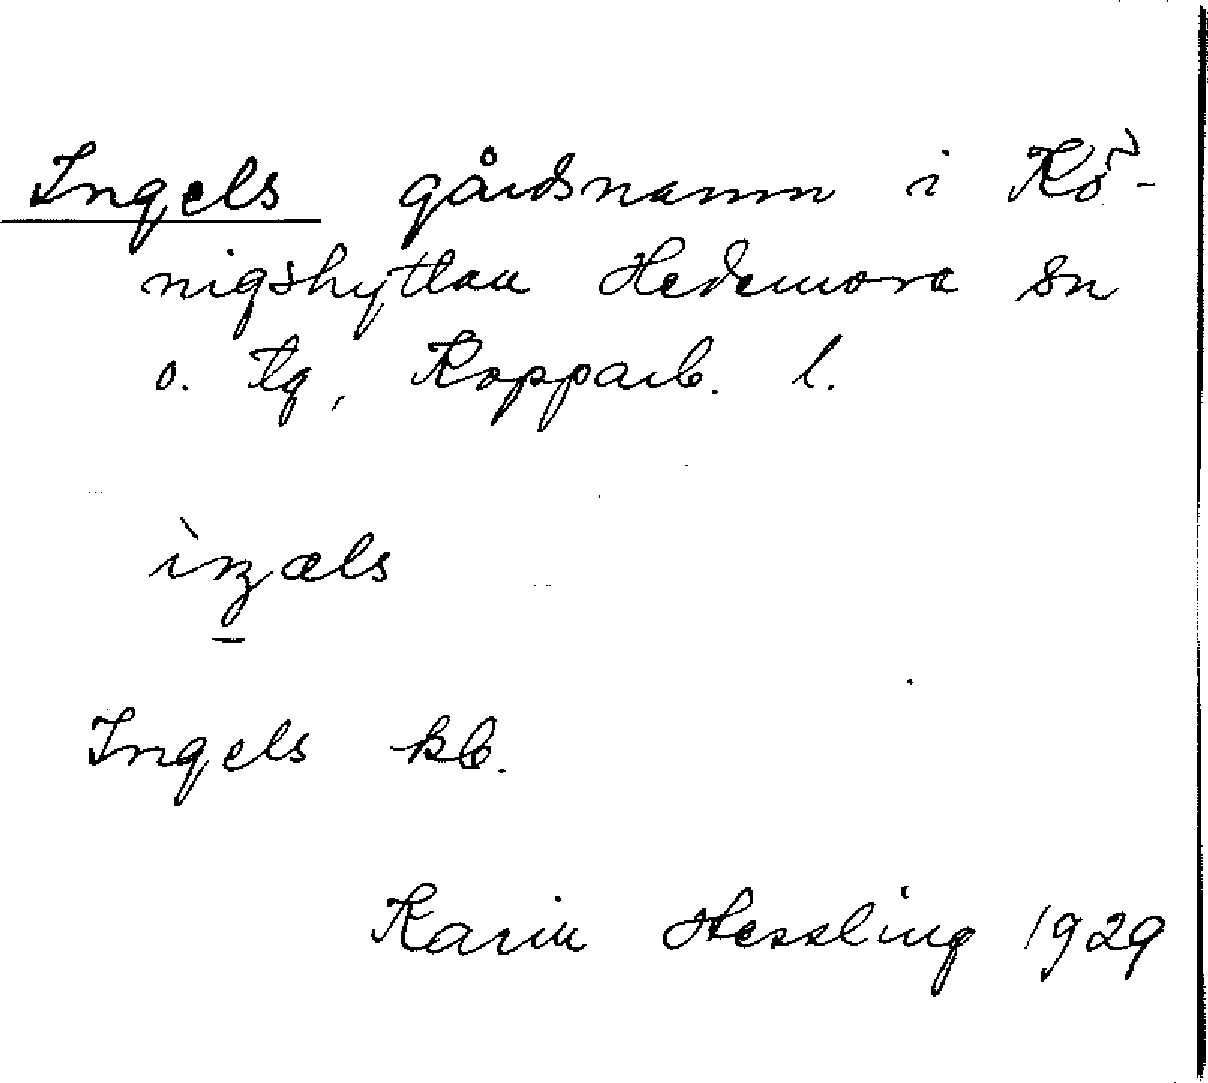 Ingels gårdsnamn i Kö-
nigshyttan Hedemora sn
o. tg, Kopparb. l.
Ingels kb.
Karin Hessling 1929